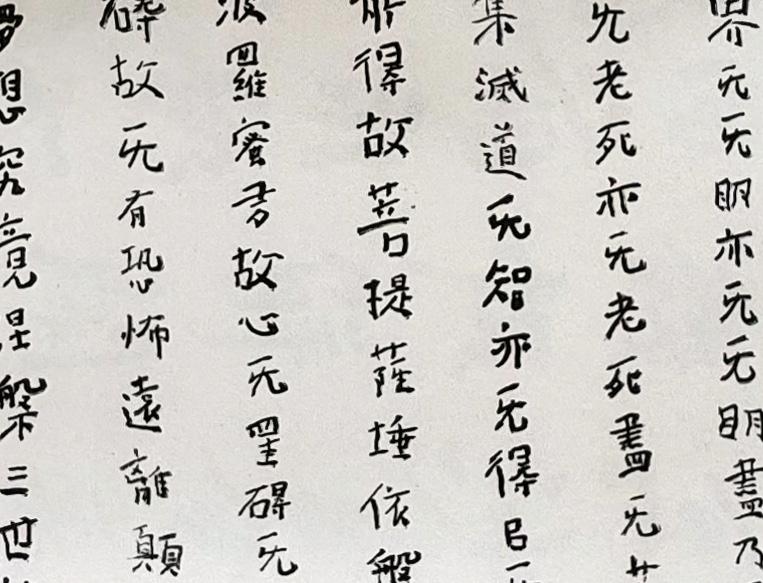 界无无明亦无无明盡乃
无老死亦无老死盡无
集滅道无智亦无得㠯
所得故菩提薩埵依般
波羅蜜多故心无罣碍无
碍故无有恐怖遠離顛
夢想究竟涅槃三世